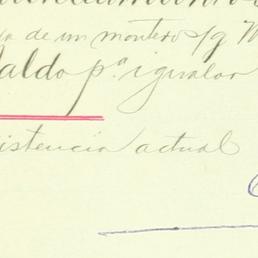 de un montero s/g
aldo p.ª igualar
istencia actual